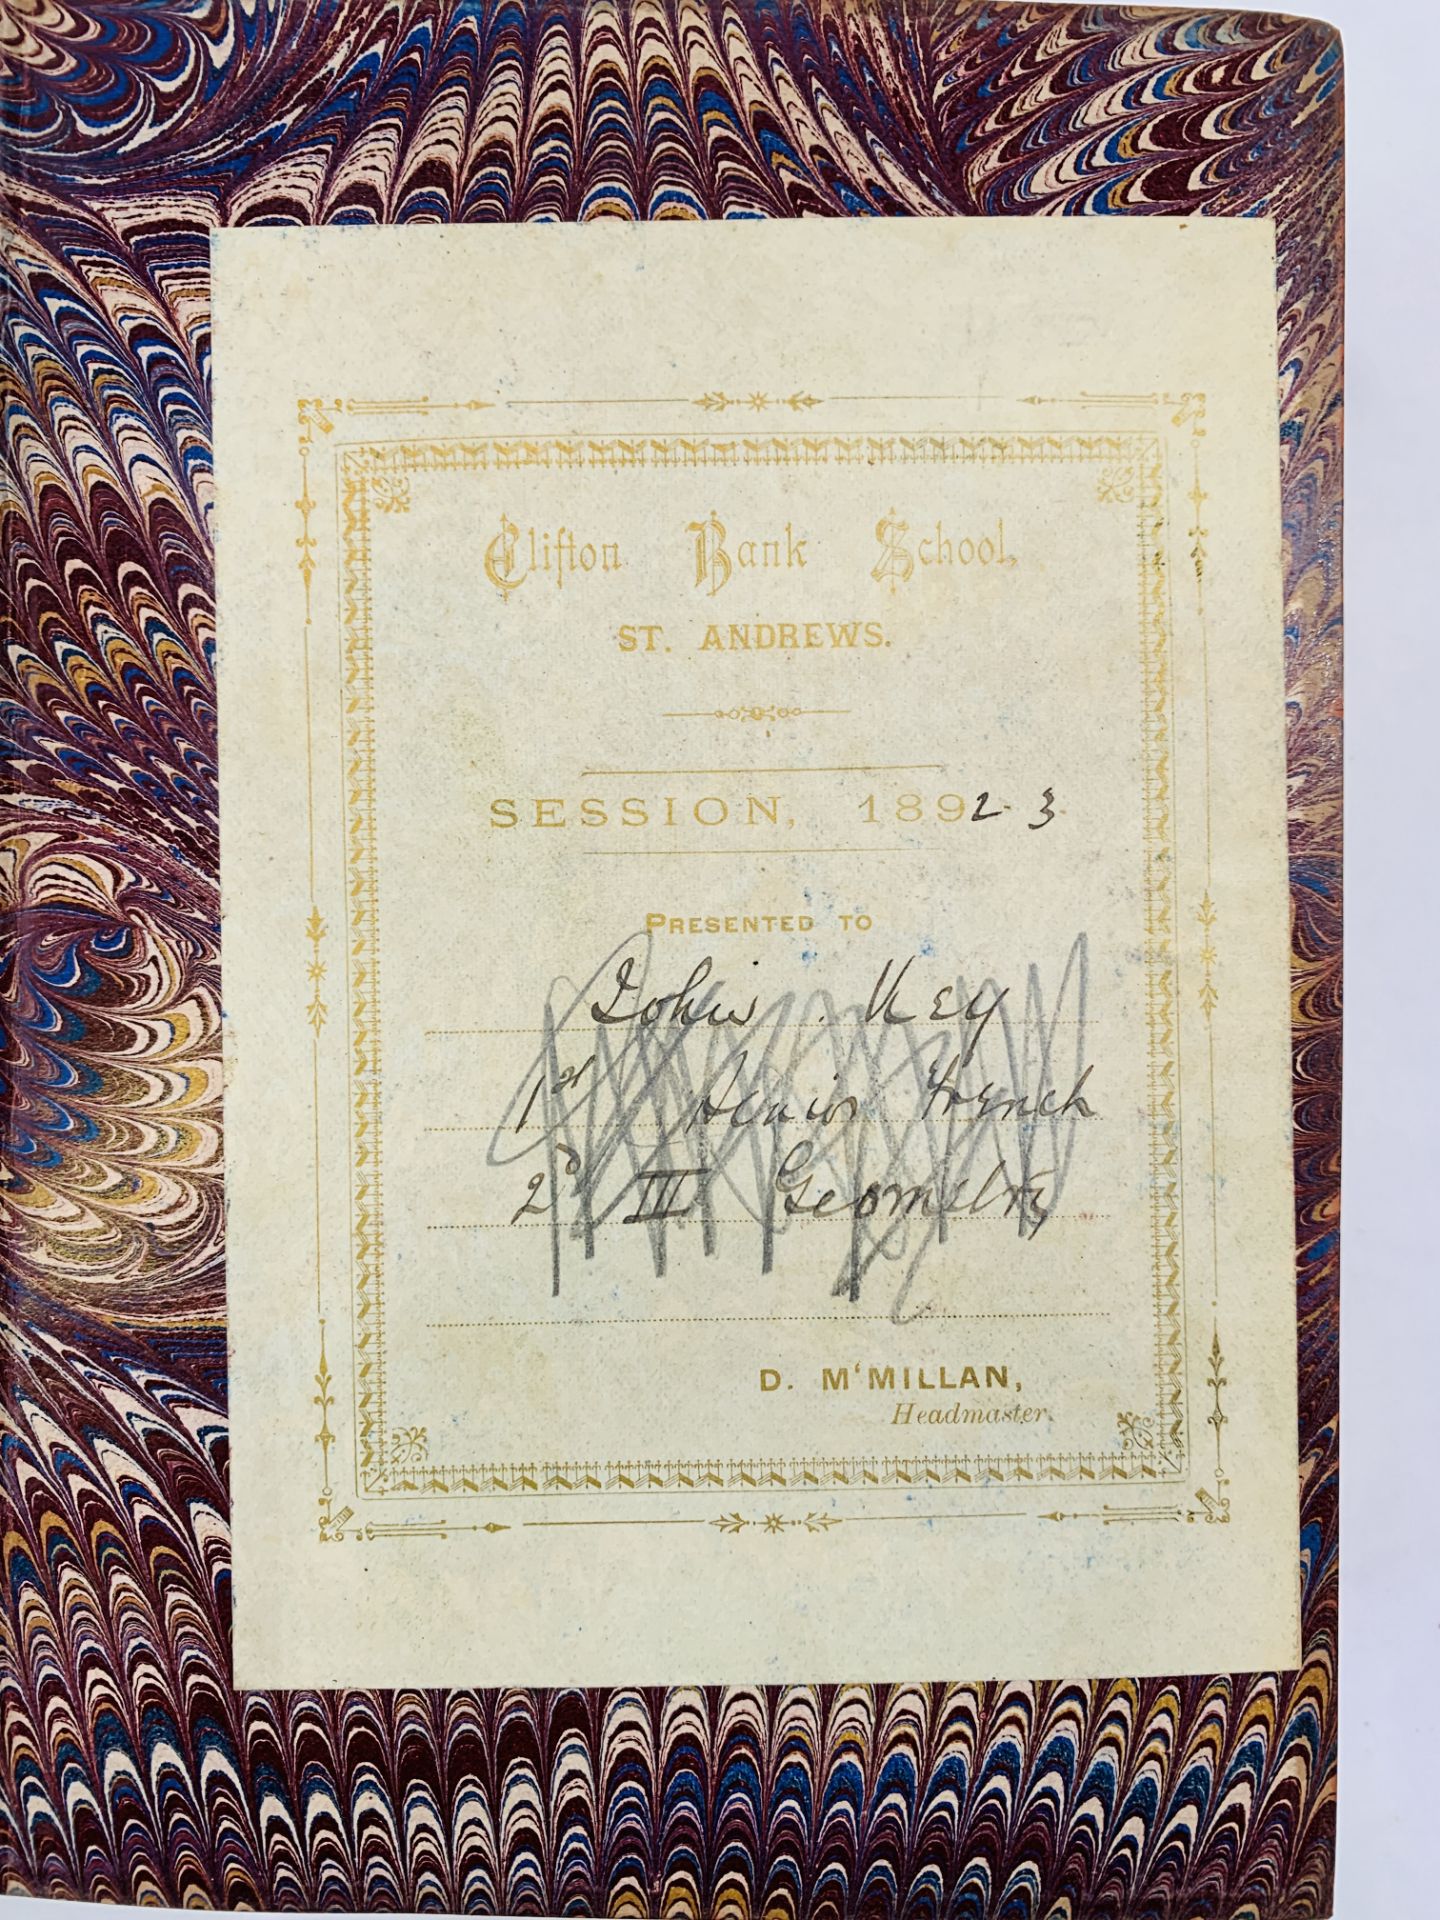 Clifton Bank School,
ST. ANDREWS.
SESSION, 1892-3.
PRESENTED TO
John Key
1st Senior French
2d III Geometry
D. M‘MILLAN,
Headmaster.